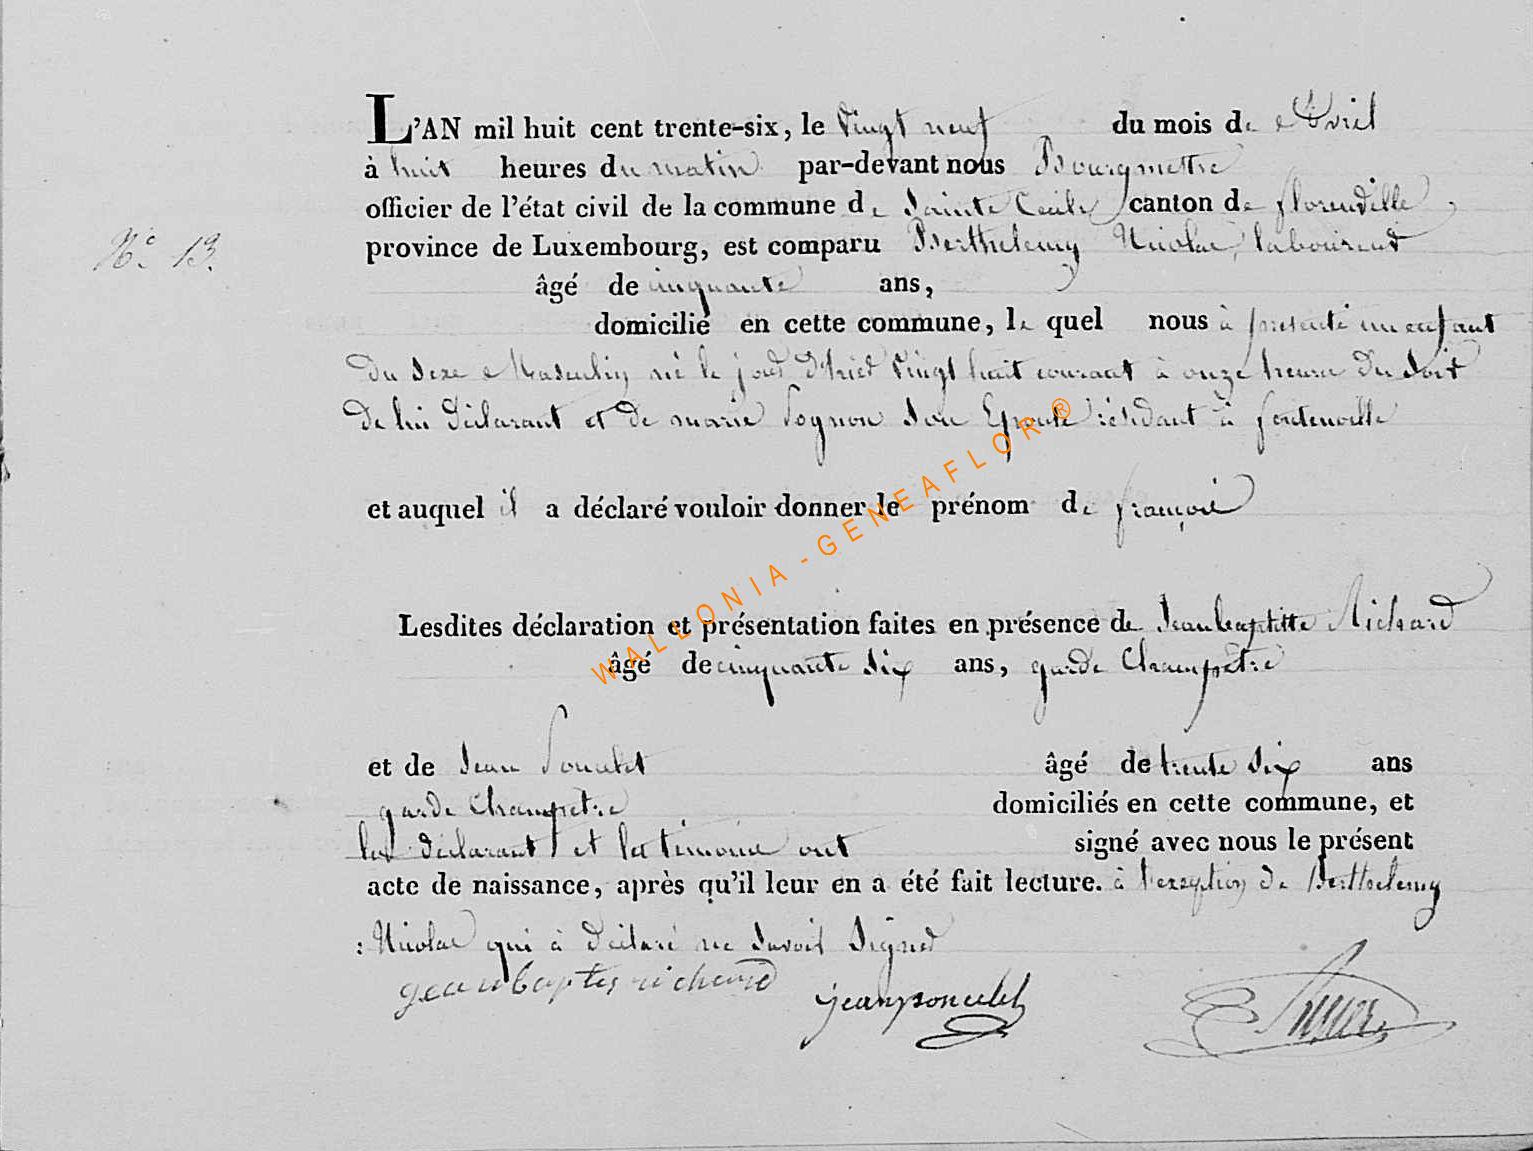 L'AN mil huit cent trente-six, le Vingt neuf du mois de Avril
à huit heures du matin par-devant nous Bourgmettre
officier de l'état civil de la commune de Sainte Cecile canton de florenville,
N.° 13. province de Luxembourg, est comparu Berthelemy Nicolas, laboureur
âgé de cinquante ans,
domicilié en cette commune, le quel nous à présenté un enfant
du sexe Masculin né le jour d'hier Vingt huit courant à onze heures du soir
de lui déclarant et de marie Pognon son Epouse résidant à fontenoille
et auquel il a déclaré vouloir donner le prénom de françois
Lesdites déclaration et présentation faites en présence de Jeanbaptitte Richard
âgé de cinquante six ans, garde Champêtre
et de Jean Poncelet âgé de trente six ans
garde Champetre domiciliés en cette commune, et
les déclarant et les témoins ont signé avec nous le présent
acte de naissance, après qu'il leur en a été fait lecture. à l'exception de Berthelemy
: Nicolas qui à déclaré ne savoir signer
jeanbaptis richard jeanponcelet
WALLONIA - GENEAFLOR ®